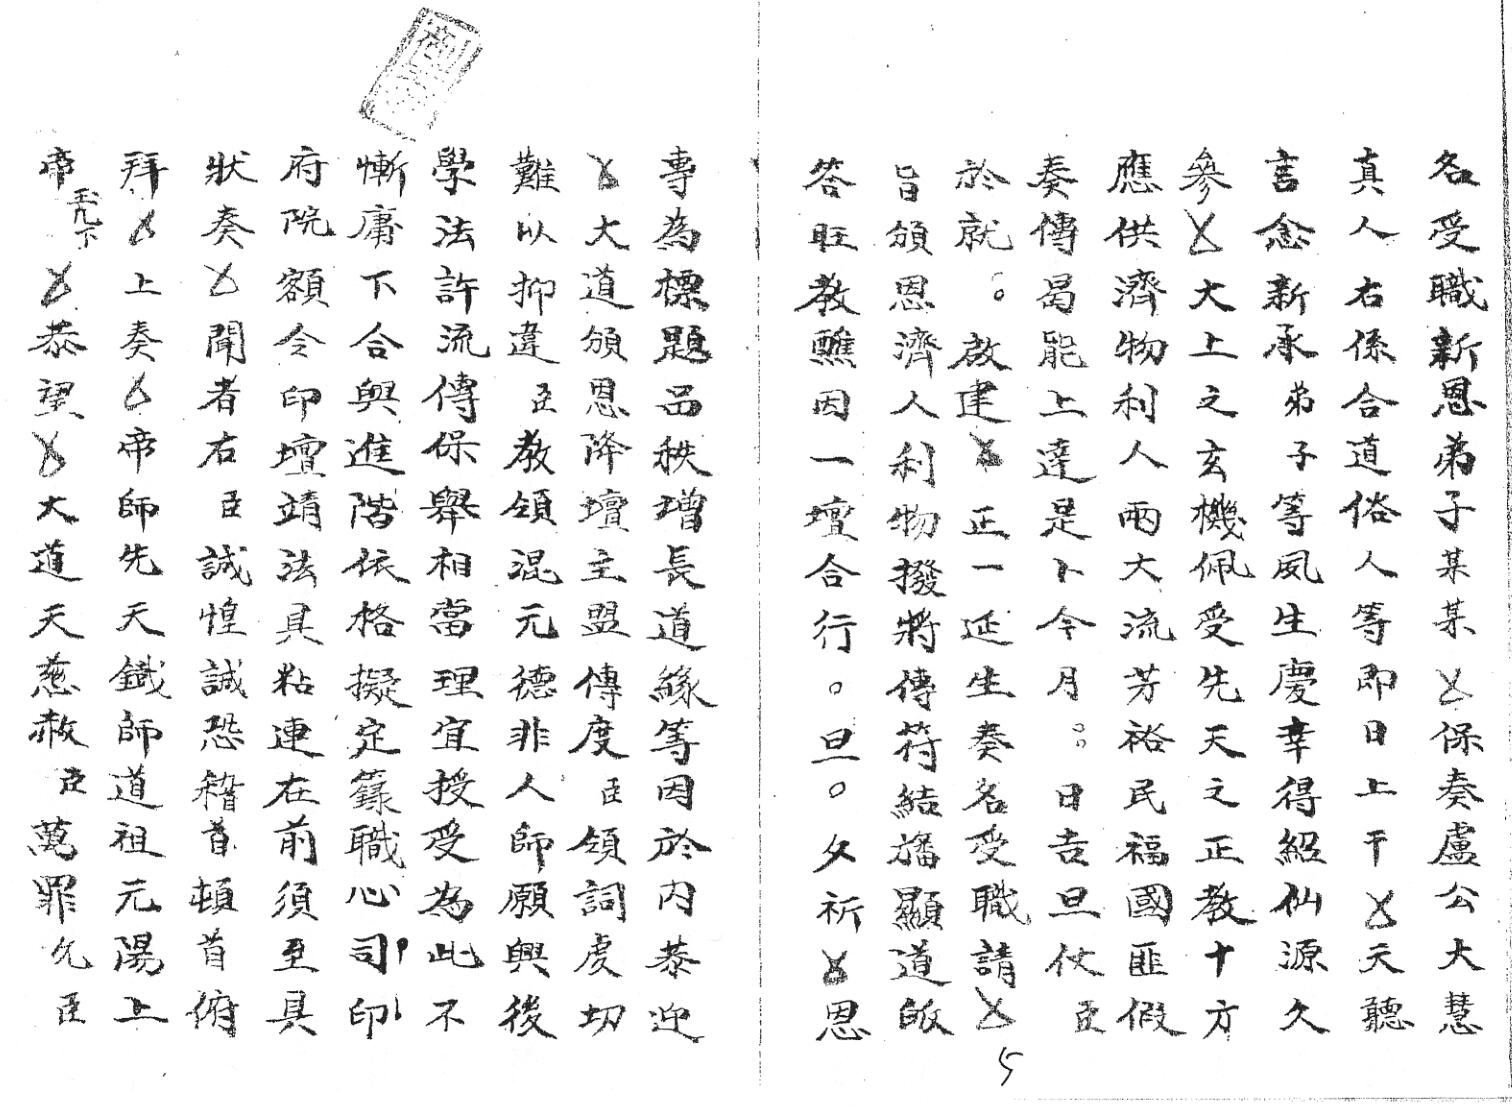 名受職新恩弟子某某 保奏盧公大慧
真人右係合道俗人等即日上干 天聽
言念新承弟子等夙生慶幸得紹仙源久
參 大上之玄機佩受先天之正教十方
應供濟物利人兩大流芳裕民福國匪假
奏傳曷能上達是卜今月 日吉旦仗臣
於就 啟建 正一延生奏名受職請
旨頒恩濟人利物撥將傳符結旛顯道皈
答旺教醮因一壇合行○旦○夊祈 恩
專為標題品秩增長道緣等因於內恭迎
大道頒恩降壇主盟傳度臣領詞虔切
難以抑違臣教領混元德非人師願興後
學法許流傳保舉相當理宜授受為此不
慚庸下合與進階依格擬定籙職心司印
府院額令印壇靖法具粘連在前須至具
狀奏 聞者右臣誠惶誠恐稽首頓首俯
拜 上奏 帝師先天鐵師道祖元陽上
帝 恭望 大道天慈赦臣萬罪允臣
5